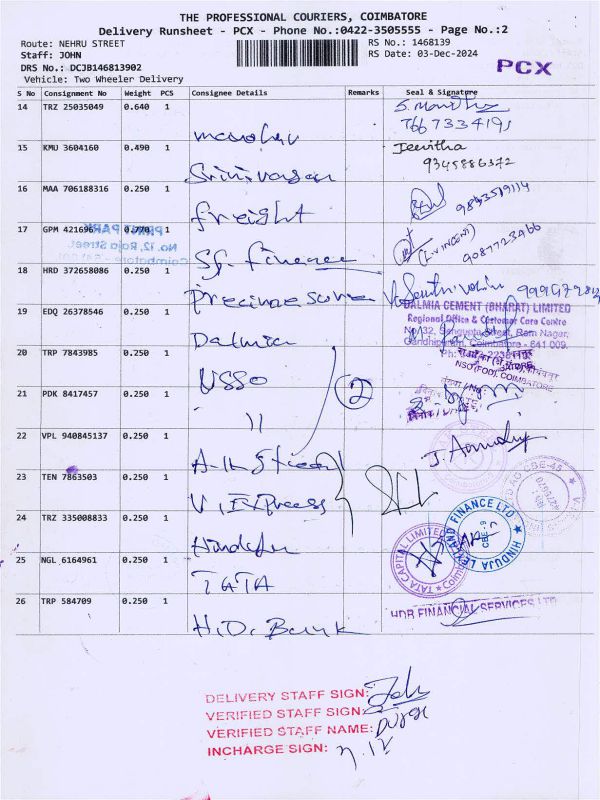 THE PROFESSIONAL COURIERS, COIMBATORE
Delivery Runsheet - PCX - Phone No.:0422-3505555 - Page No.:2
Route: NEHRU STREET RS No.: 1468139
Staff: JOHN RS Date: 03-Dec-2024
DRS No.: DCJB146813902
Vehicle: Two Wheeler Delivery
PCX
S No Consignment No Weight PCS Consignee Details Remarks Seal & Signature
14 TRZ 25035049 0.640 1
manohar
7667334191
15 KMU 3604160 0.490 1 Jeevitha
Srinivasan 9345886372
16 MAA 706188316 0.250 1
freight 9843519114
17 GPM 421696 0.770 1
PARK
No. 12, Raja Street
Coimbatore
Sg. finance 9087723466
18 HRD 372658086 0.250 1
DALMIA CEMENT (BHARAT) LIMITED
Regional Office & Customer Care Centre
No/32, Ram Nagar,
Gandhipuram, Coimbatore - 641 009.
19 EDQ 26378546 0.250 1
Dalmia
20 TRP 7843985 0.250 1
NSSO
2
NSO (FOD), COIMBATORE
21 PDK 8417457 0.250 1
"
22 VPL 940845137 0.250 1
23 TEN 7863503 0.250 1
V. Express
24 TRZ 335008833 0.250 1
HINDUJA LEYLAND FINANCE LTD
CBE-9
25 NGL 6164961 0.250 1
TATA
TATA CAPITAL LIMITED
26 TRP 584709 0.250 1
HDB FINANCIAL SERVICES LTD
H.D. Bank
DELIVERY STAFF SIGN: John
VERIFIED STAFF SIGN:
VERIFIED STAFF NAME:
INCHARGE SIGN: